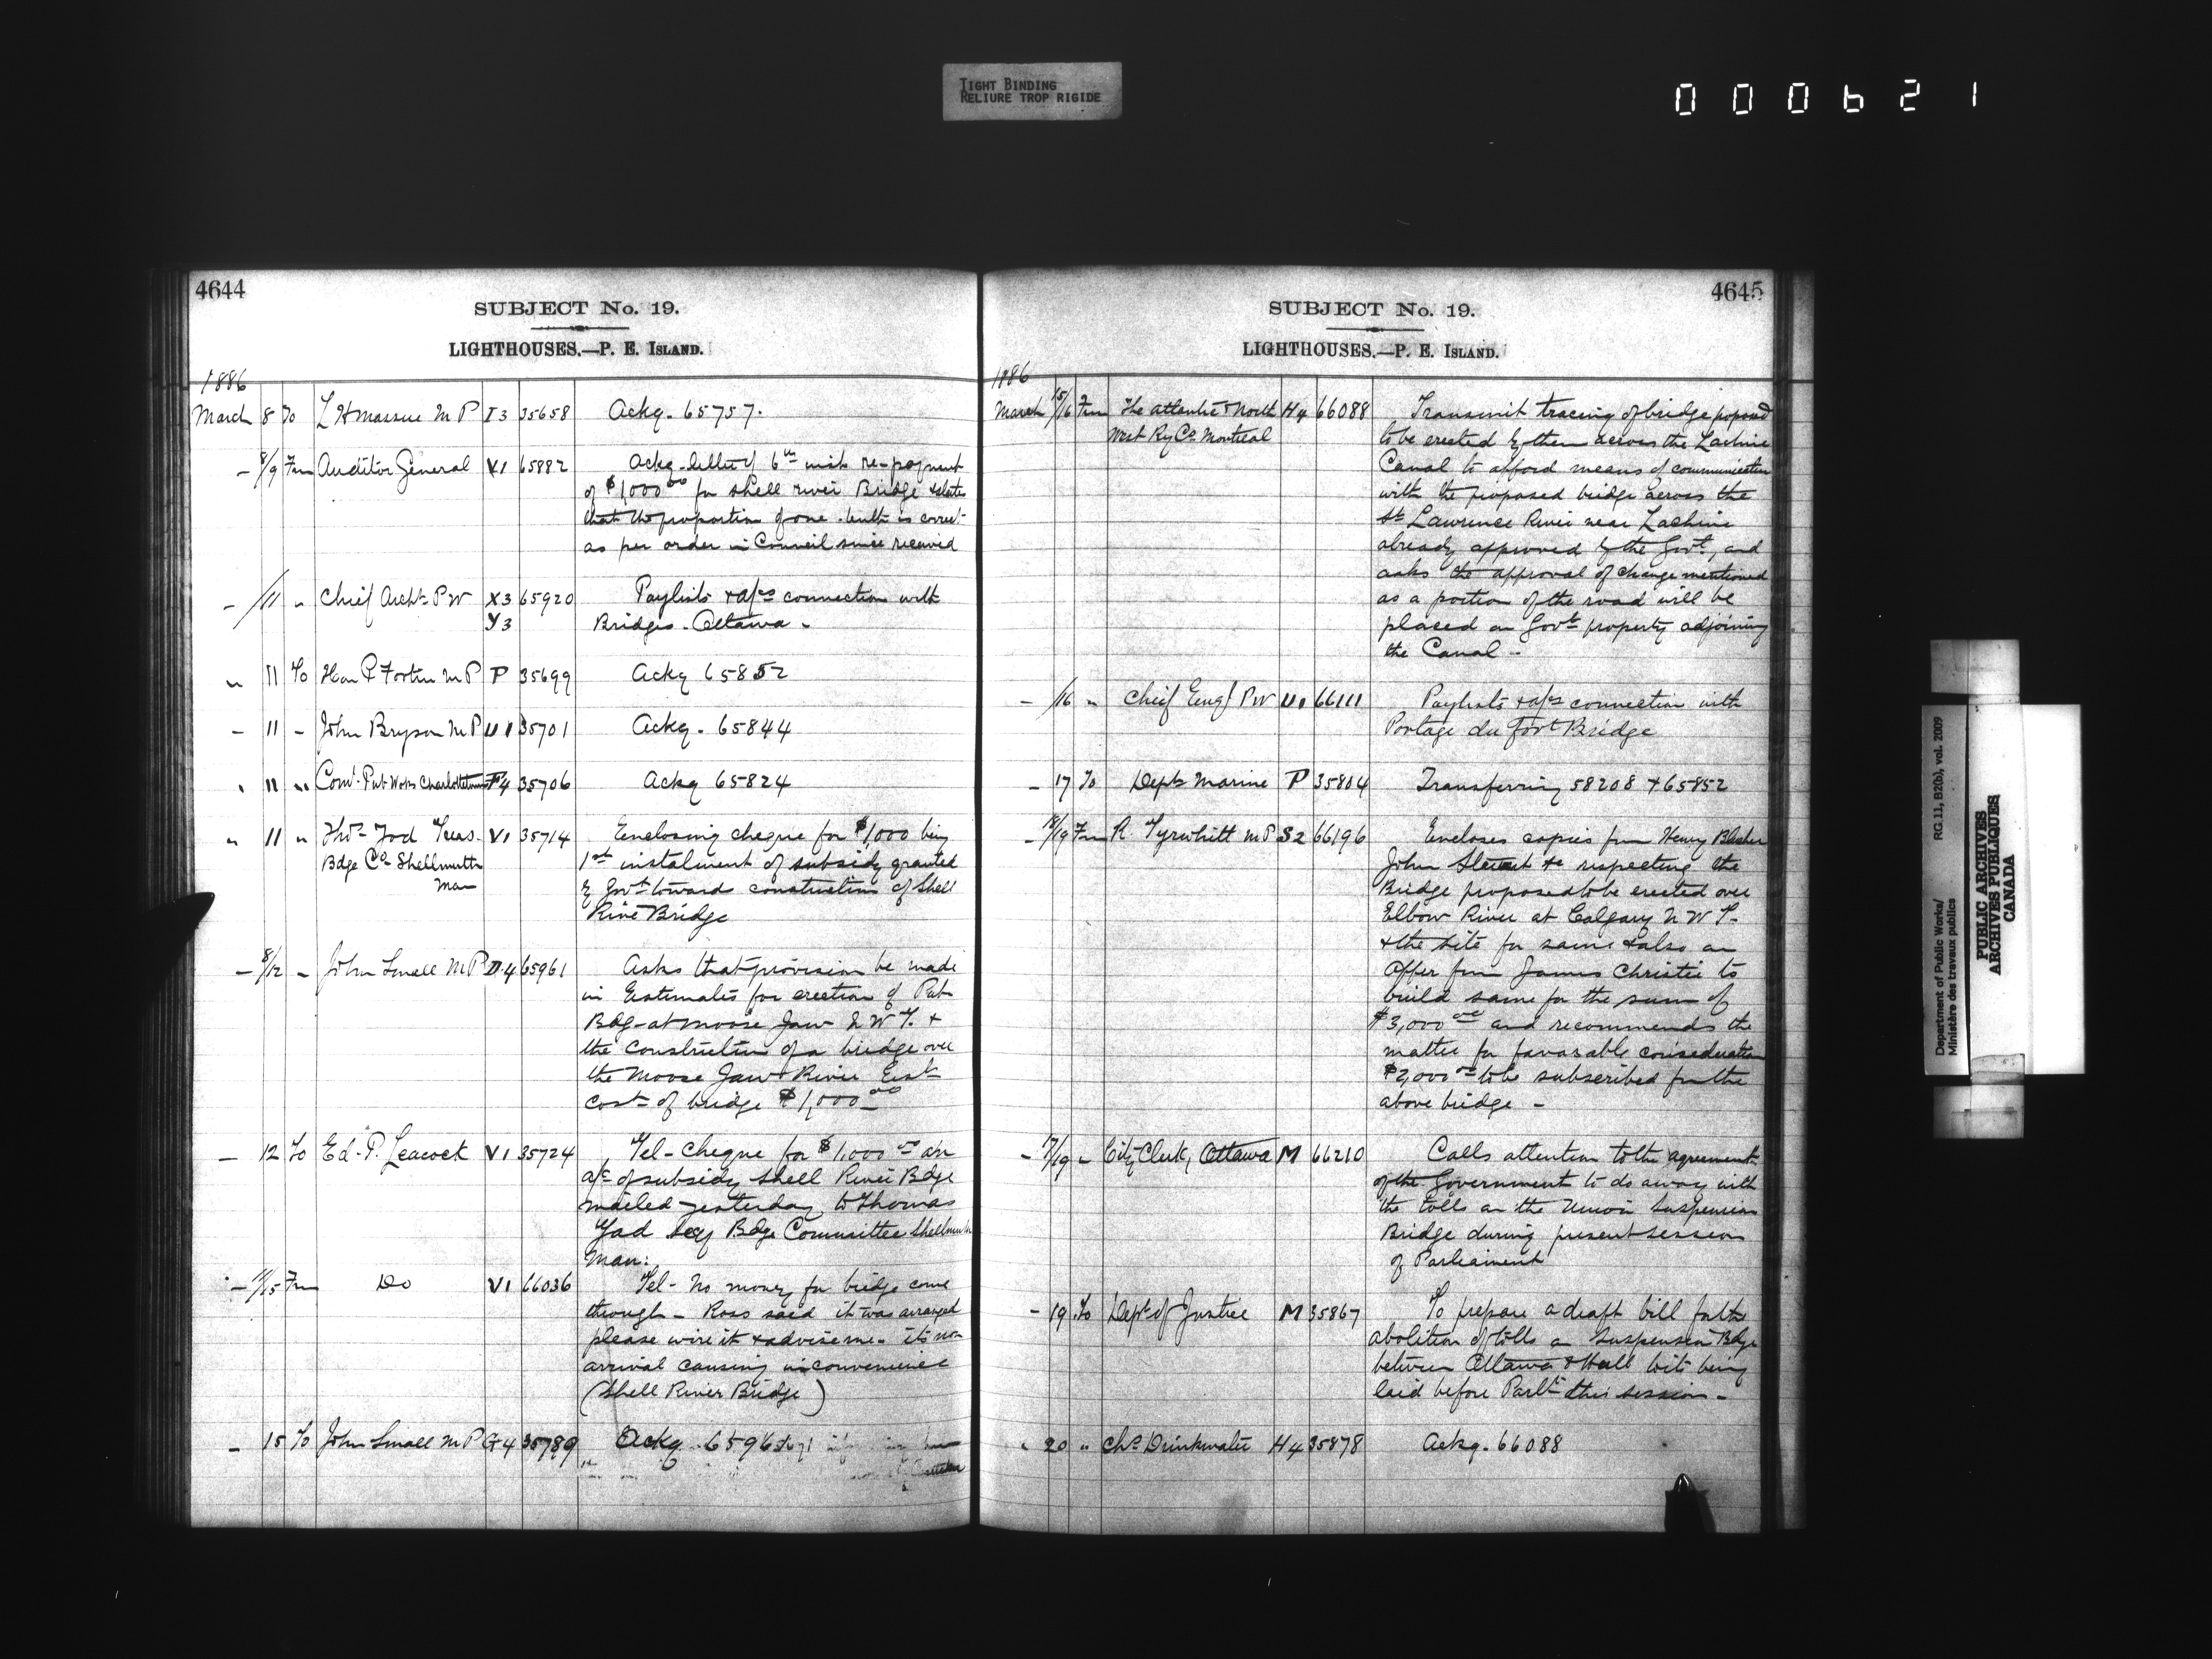 TIGHT BINDING
RELIURE TROP RIGIDE
000621
4644
SUBJECT No. 19.
LIGHTHOUSES.—P. E. ISLAND.
1886
March 8 To L H Massue M P I3 35658 Ackg. 65757.
— 8/9 Fm Auditor General V1 65882 Ackg. letter of 6th inst re-payment
of $1,000 00 for Shell river Bridge & states
that the proportion of one tenth is correct
as per order in Council since received
— /11 " Chief Archt P W X3 65920 Paylists & a/cs connection with
Y3 Bridges - Ottawa -
" 11 To Hon P Fortin M P P 35699 Ackg 65852
— 11 — John Bryson M P U1 35701 Ackg. 65844
" 11 " Com. Pub Works Charlottetown F4 35706 Ackg 65824
" 11 " Thos Yod Treas. V1 35714 Enclosing cheque for $1,000 being
Bdge Co Shellmouth 1st instalment of subsidy granted
Man by Govt toward construction of Shell
River Bridge
— 8/12 — John Small M P D4 65961 Asks that provision be made
in Estimates for erection of Pub
Bdg - at Moose Jaw N W T. &
the construction of a bridge over
the Moose Jaw River Est
cost of bridge $1,000 00
— 12 To Ed. P. Leacock V1 35724 Tel - Cheque for $1,000 00 on
a/c of subsidy Shell River Bdge
mailed yesterday to Thomas
Yod Secy Bdge Committee Shellmouth
Man:
— /15 Fm Do V1 66036 Tel - No money for bridge come
through - Ross said it was arranged
please wire it & advise me - its non
arrival causing inconvenience
(Shell River Bridge)
— 15 To John Small M P G4 35789 Ackg. 65961
4645
SUBJECT No. 19.
LIGHTHOUSES.—P. E. ISLAND.
1886
March 15/16 Fm The Atlantic & North H4 66088 Transmit tracing of bridge proposed
West Ry Co Montreal to be erected by them across the Lachine
Canal to afford means of communication
with the proposed bridge across the
St Lawrence River near Lachine
already approved by the Govt, and
asks the approval of change mentioned
as a portion of the road will be
placed on Govt property adjoining
the Canal -
— /16 " Chief Engr P W U1 66111 Paylists & a/cs connection with
Portage du fort Bridge
— 17 To Dept Marine P 35804 Transferring 58208 & 65852
— 18/19 Fm R Tyrwhitt M P S2 66196 Encloses copies from Henry
John Stewart &c respecting the
Bridge proposed to be erected over
Elbow River at Calgary N W T.
& the site for same & also an
offer from James Christie to
build same for the sum of
$3,000 00 and recommends the
matter for favorable consideration
$2,000 00 to be subscribed for the
above bridge -
— 17/19 " City Clerk, Ottawa M 66210 Calls attention to the agreement
of the Government to do away with
the tolls on the Union Suspension
Bridge during present session
of Parliament
— 19 To Dept of Justice M 35867 To prepare a draft bill for the
abolition of tolls on Suspension Bdge
between Ottawa & Hull to its being
laid before Parlt this session -
" 20 " Chs Drinkwater H4 35878 Ackg. 66088
Department of Public Works/ RG 11, B2(b), vol. 2009
Ministère des travaux publics
PUBLIC ARCHIVES
ARCHIVES PUBLIQUES
CANADA